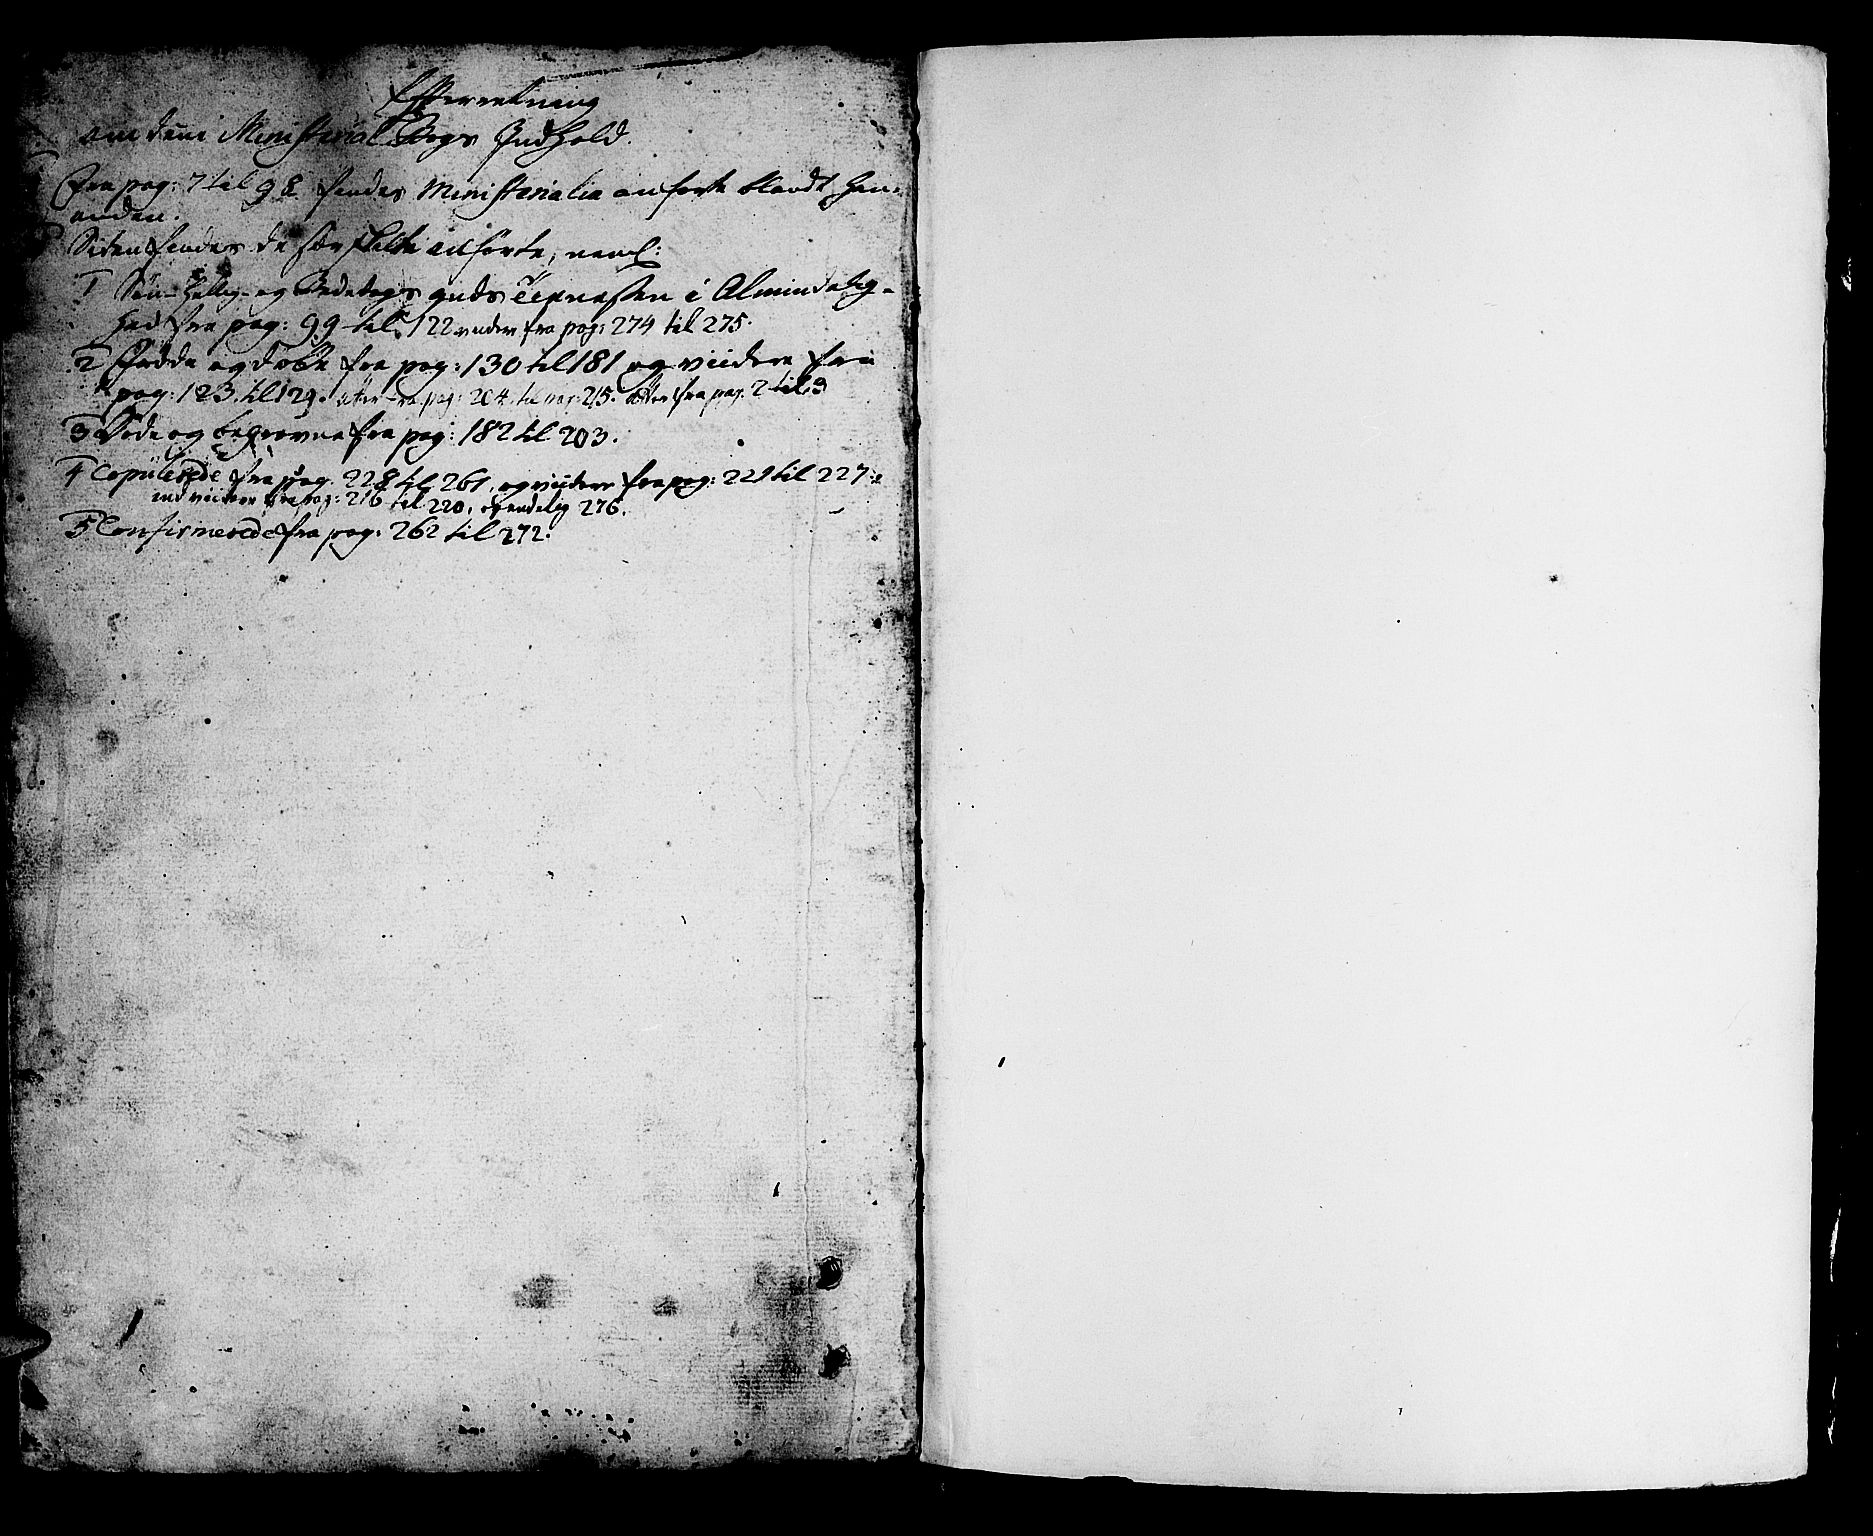 Efterretning
om denne Ministerial Bogs Indhold.
Fra pag: 7 til 98 findes Ministerialia anførte blandt hin-
anden.
Siden findes de særskilte anførte, neml:
1 Søn- Hellig- og Bededags Guds Tienesten i Almindelig-
hed fra pag: 99 til 122 videre fra pag: 274 til 275.
2 Fødde og døbte fra pag: 130 til 181 og viidere fra
pag: 123 til 129. atter fra pag: 204 til pag: 215. atter fra pag. 2 til 3
3 Døde og begravne fra pag: 182 til 203.
4 Copulerede fra pag. 228 til 261, og viidere fra pag: 221 til 227
viidere fra pag: 216 til 220, og endelig 276.
5 Confirmerede fra pag: 262 til 272.